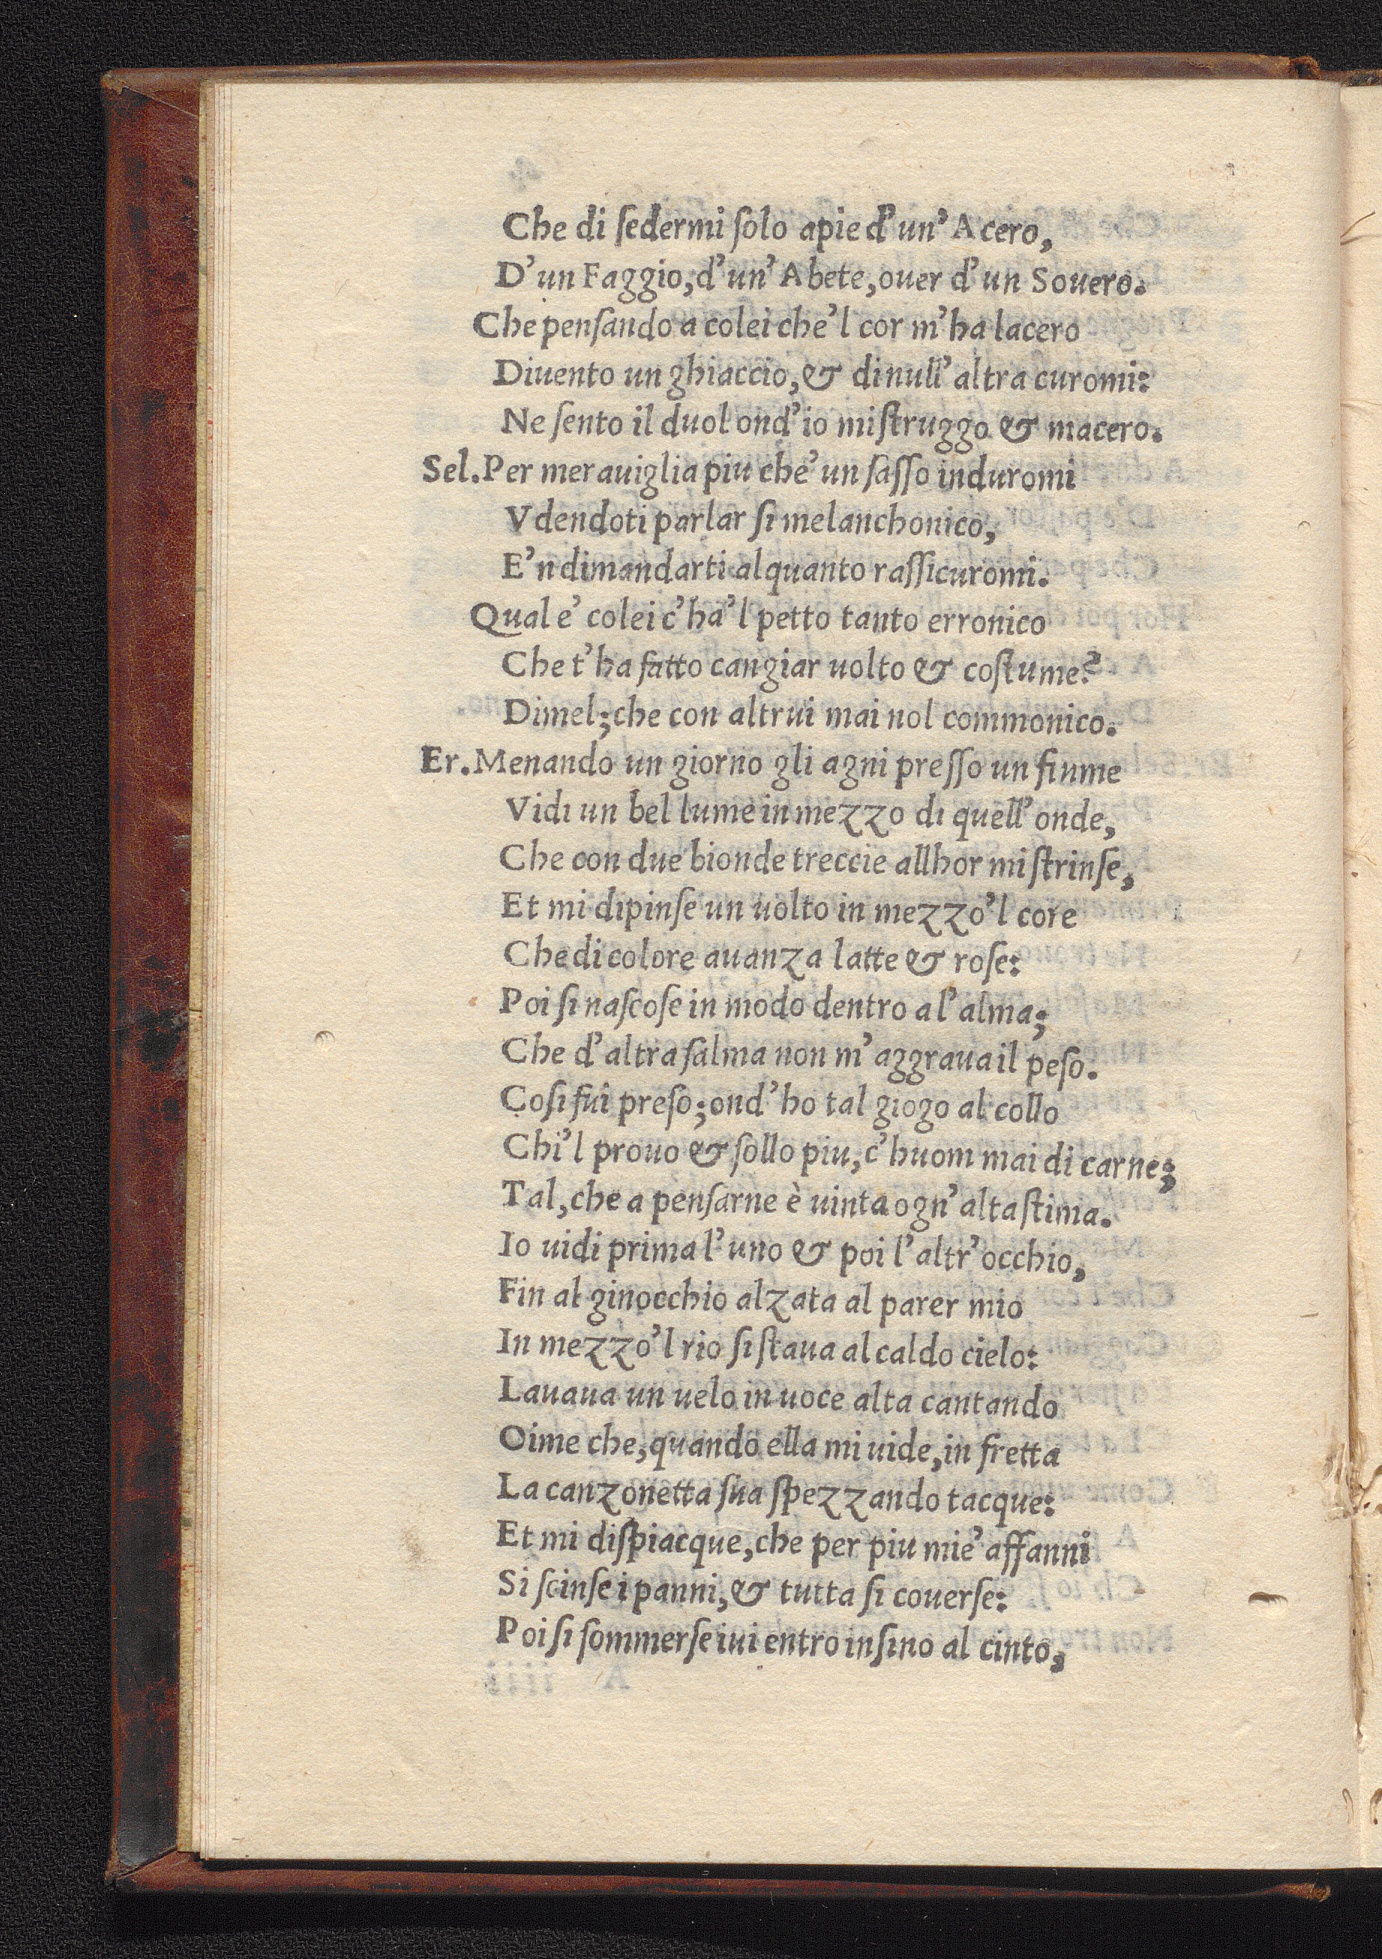 Che di ſedermi ſolo apie d'un' Acero,
D'un Faggio, d'un' Abete, ouer d'un Souero.
Che penſando a colei che'l cor m'ha lacero
Diuento un ghiaccio, & di null' altra curomi:
Ne ſento il duol ond'io mi ſtruggo & macero.
Sel. Per merauiglia piu che' un ſaſſo induromi
Vdendoti parlar ſi melanchonico,
E'n dimandarti alquanto raſſicuromi.
Qual e' colei c'ha'l petto tanto erronico
Che t'ha fatto cangiar uolto & coſtume?
Dimel; che con altrui mai nol commonico.
Er. Menando un giorno gli agni preſſo un fiume
Vidi un bel lume in mezzo di quell' onde,
Che con due bionde treccie allhor mi ſtrinſe,
Et mi dipinſe un uolto in mezzo'l core
Che di colore auanza latte & roſe:
Poi ſi naſcoſe in modo dentro a l'alma;
Che d'altra ſalma non m'aggraua il peſo.
Coſi fui preſo; ond'ho tal giogo al collo
Chi'l prouo & ſollo piu, c'huom mai di carne;
Tal, che a penſarne è uinta ogn' alta ſtima.
Io uidi prima l'uno & poi l'altr' occhio,
Fin al ginocchio alzata al parer mio
In mezzo'l rio ſi ſtaua al caldo cielo:
Lauaua un uelo in uoce alta cantando
Oime che, quando ella mi uide, in fretta
La canzonetta ſua ſpezzando tacque:
Et mi diſpiacque, che per piu mie' affanni
Si ſcinſe i panni, & tutta ſi couerſe:
Poi ſi ſommerſe iui entro inſino al cinto,